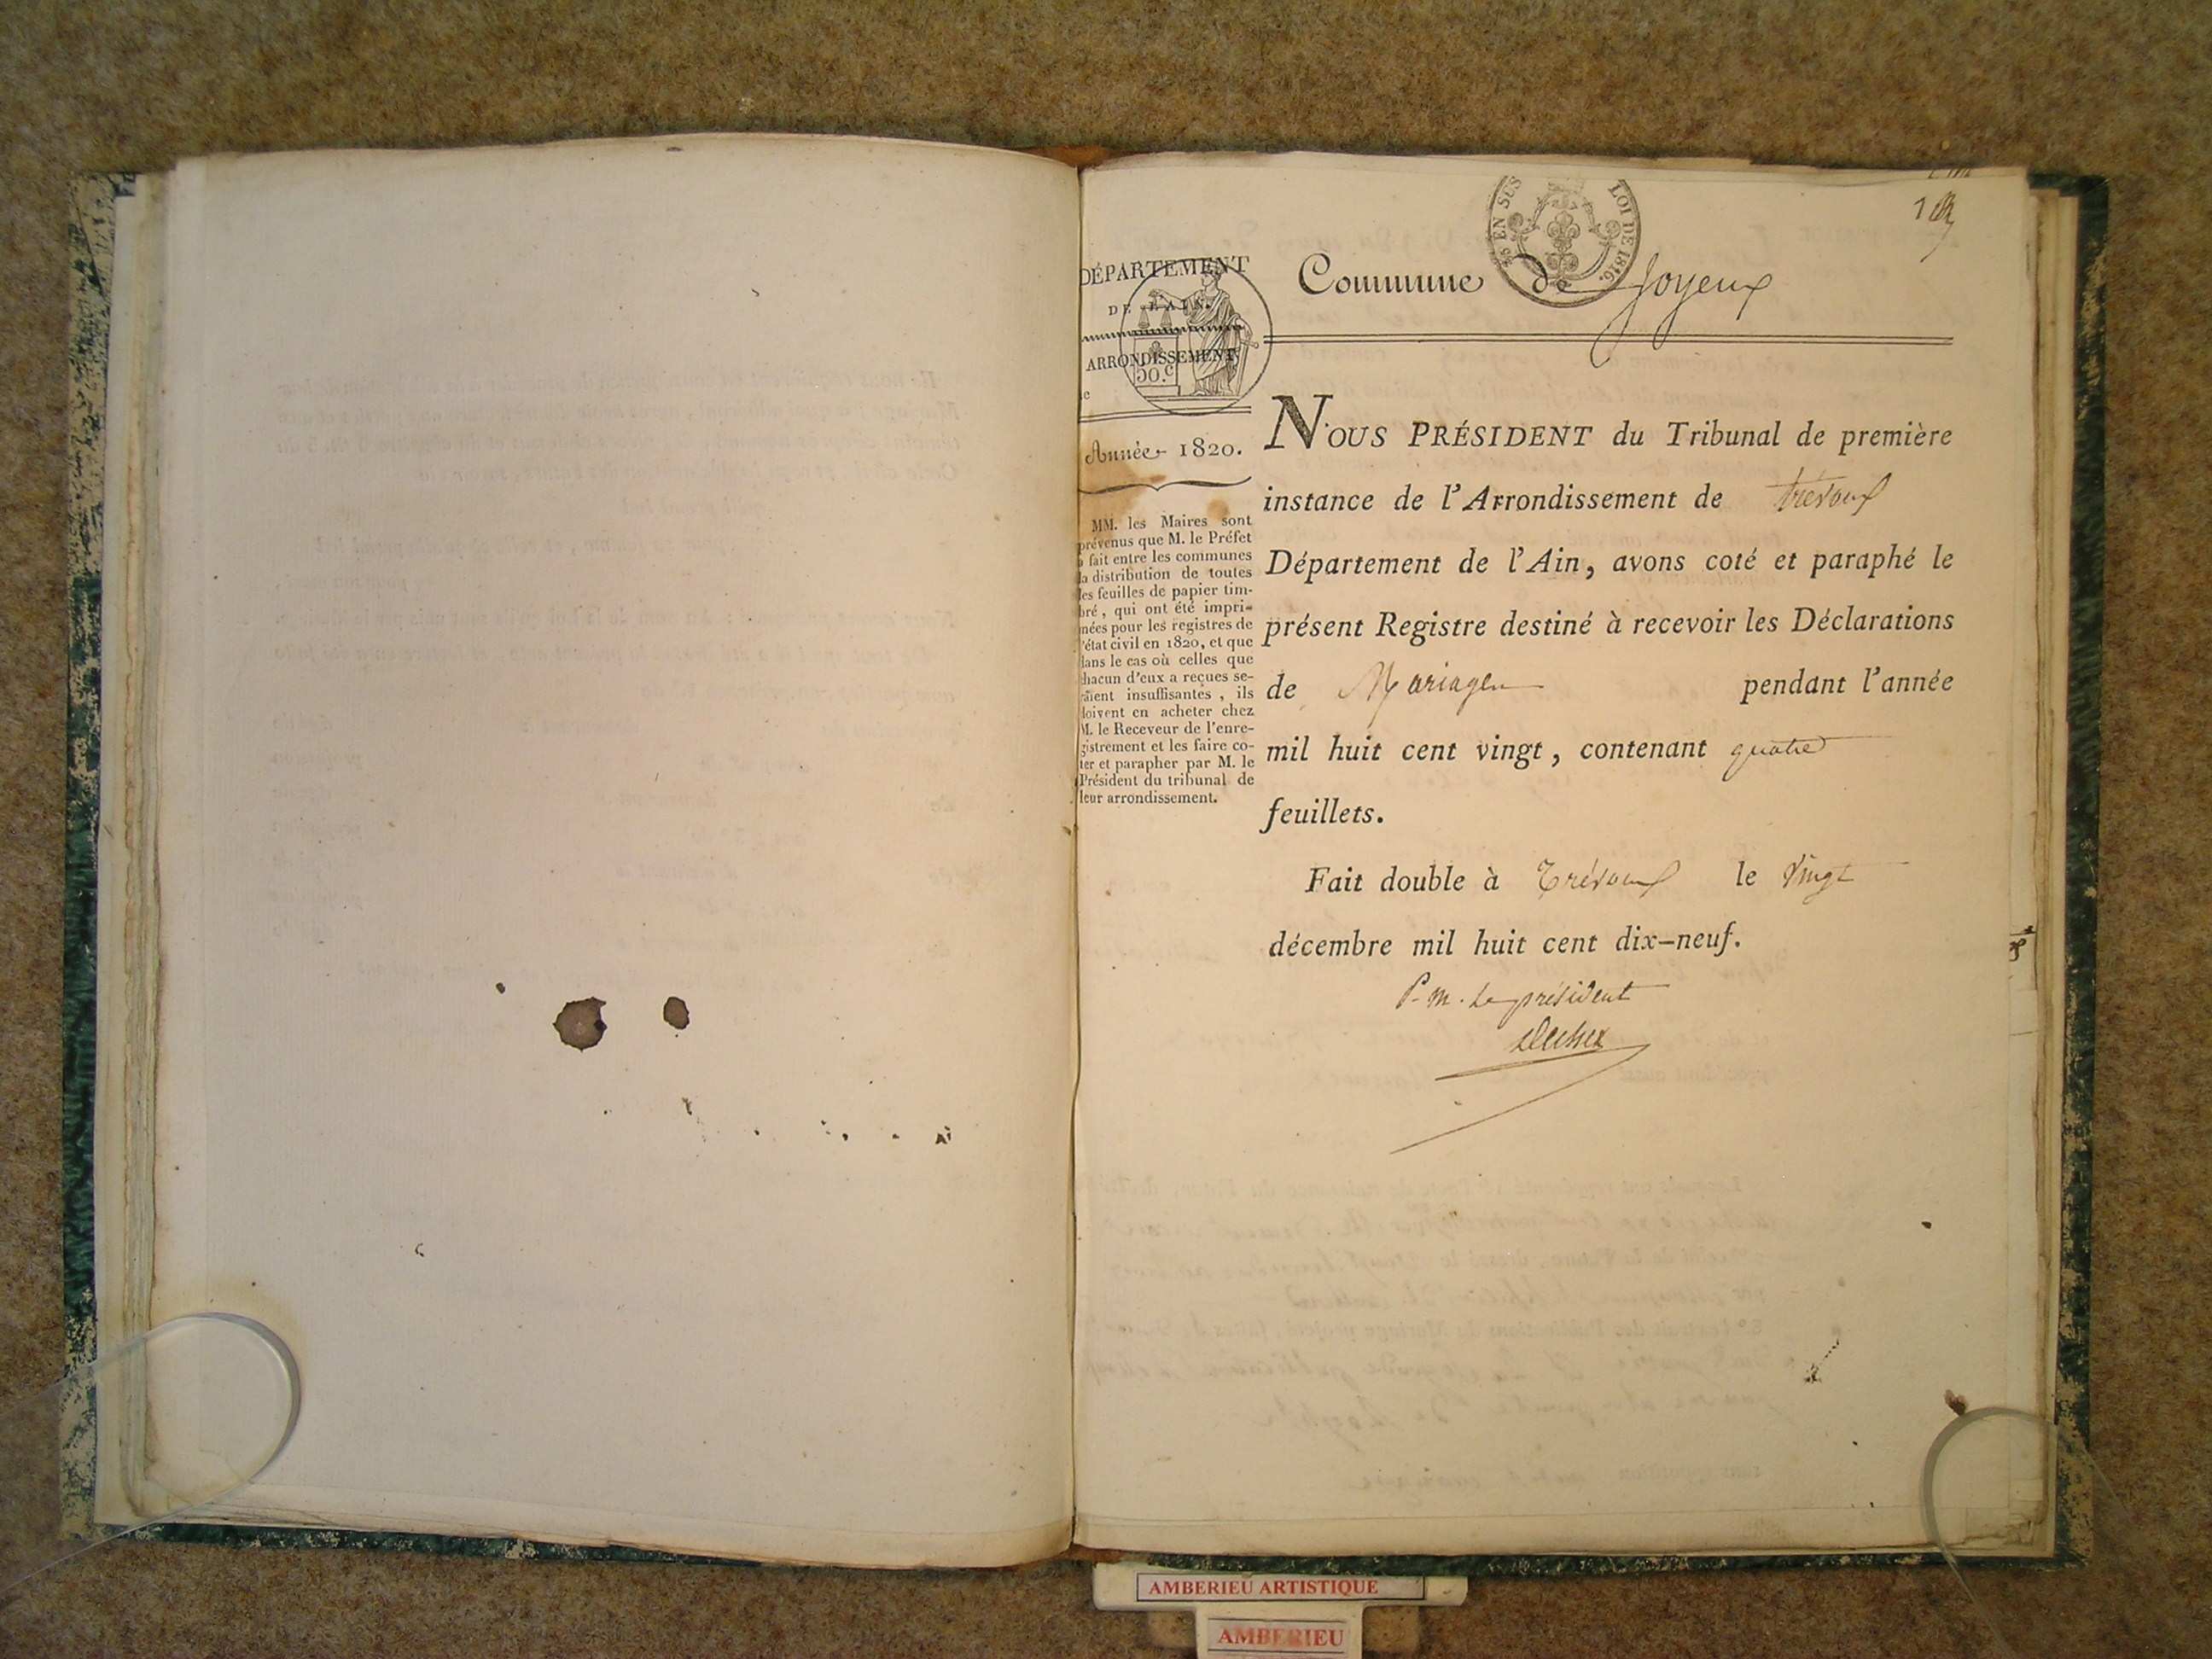 EN SUS
LOI DE 1816.
DÉPARTEMENT
DE L'AIN.
ARRONDISSEMENT
50.C
Année 1820.
MM. les Maires sont
prévenus que M. le Préfet
a fait entre les communes
la distribution de toutes
les feuilles de papier tim-
bré, qui ont été impri-
mées pour les registres de
l'état civil en 1820, et que
dans le cas où celles que
chacun d'eux a reçues se-
raient insuffisantes, ils
doivent en acheter chez
M. le Receveur de l'enre-
gistrement et les faire co-
ter et parapher par M. le
Président du tribunal de
leur arrondissement.
Commune de Joyeux
NOUS PRÉSIDENT du Tribunal de première
instance de l'Arrondissement de trévoux
Département de l'Ain, avons coté et paraphé le
présent Registre destiné à recevoir les Déclarations
de Mariages pendant l'année
mil huit cent vingt, contenant quatre
feuillets.
Fait double à Trévoux le vingt
décembre mil huit cent dix-neuf.
P. m. Le président
AMBERIEU ARTISTIQUE
AMBERIEU